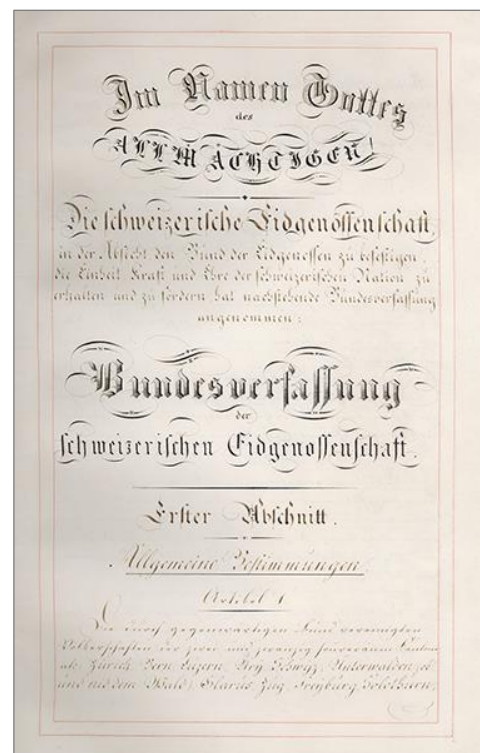 Im Namen Gottes
des
ALLMÄCHTIGEN!
Die schweizerische Eidgenossenschaft,
in der Absicht den Bund der Eidgenossen zu befestigen,
die Einheit Kraft und Ehre der schweizerischen Nation zu
erhalten und zu fördern hat nachstehende Bundesverfassung
angenommen:
Bundesverfassung
der
schweizerischen Eidgenossenschaft.
Erster Abschnitt.
Allgemeine Bestimmungen.
Artikel 1
Die durch gegenwärtigen Bund vereinigten
Völkerschaften der zwei und zwanzig souveränen Kantone
als: Zürich, Bern, Luzern, Ury, Schwyz, Unterwalden, ob
und nid dem Wald, Glarus, Zug, Freyburg, Solothurn,